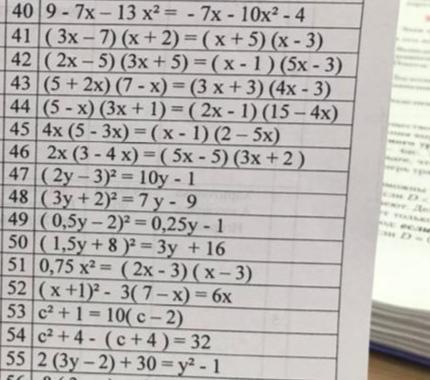 40 9 - 7x – 13 x² = - 7x - 10x² - 4
41 ( 3x – 7) (x + 2) = ( x + 5) (x - 3)
42 ( 2x – 5) (3x + 5) = ( x - 1 ) (5x - 3)
43 (5 + 2x) (7 - x) = (3 x + 3) (4x - 3)
44 (5 - x) (3x + 1) = ( 2x - 1) (15 – 4x)
45 4x (5 - 3x) = ( x - 1) (2 – 5x)
46 2x (3 - 4 x) = ( 5x - 5) (3x + 2 )
47 ( 2y – 3)² = 10y - 1
48 ( 3y + 2)² = 7 y - 9
49 ( 0,5y – 2)² = 0,25y - 1
50 ( 1,5y + 8 )² = 3y + 16
51 0,75 x² = ( 2x - 3) ( x – 3)
52 ( x +1)² - 3( 7 – x) = 6x
53 c² + 1 = 10( c – 2)
54 c² + 4 - ( c + 4 ) = 32
55 2 (3y – 2) + 30 = y² - 1